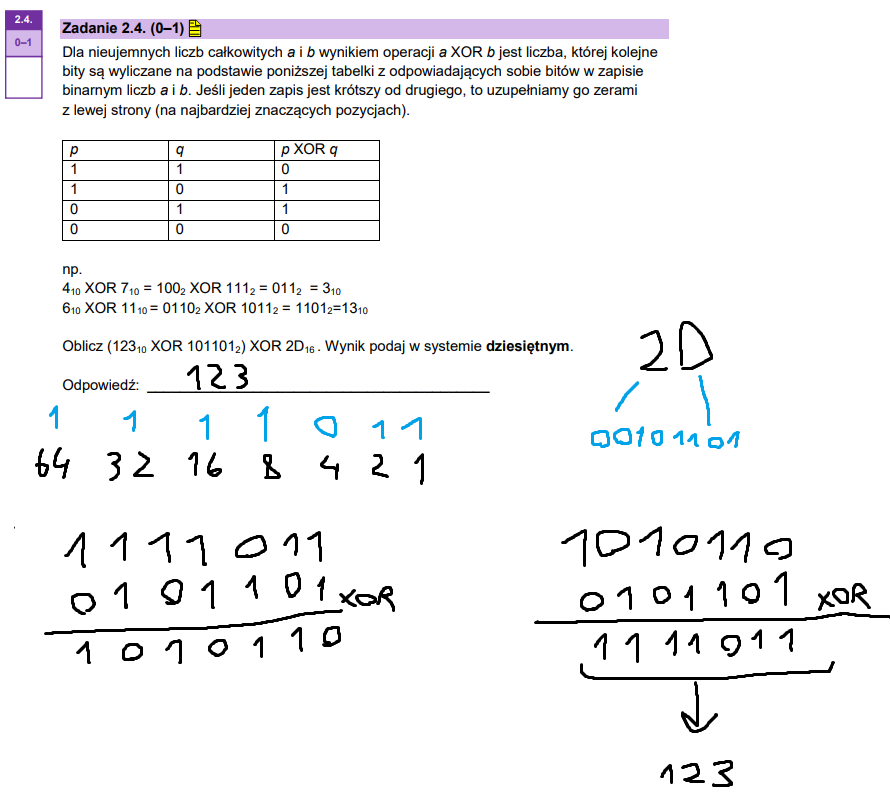 2.4.
0–1
Zadanie 2.4. (0–1)
Dla nieujemnych liczb całkowitych a i b wynikiem operacji a XOR b jest liczba, której kolejne
bity są wyliczane na podstawie poniższej tabelki z odpowiadających sobie bitów w zapisie
binarnym liczb a i b. Jeśli jeden zapis jest krótszy od drugiego, to uzupełniamy go zerami
z lewej strony (na najbardziej znaczących pozycjach).
p q p XOR q
1 1 0
1 0 1
0 1 1
0 0 0
np.
4₁₀ XOR 7₁₀ = 100₂ XOR 111₂ = 011₂ = 3₁₀
6₁₀ XOR 11₁₀ = 0110₂ XOR 1011₂ = 1101₂=13₁₀
Oblicz (123₁₀ XOR 101101₂) XOR 2D₁₆. Wynik podaj w systemie dziesiętnym.
Odpowiedź: 123
2D
00101101
1 1 1 1 0 1 1
64 32 16 8 4 2 1
1111011
0101101 XOR
1010110
1010110
0101101 XOR
1111011
123